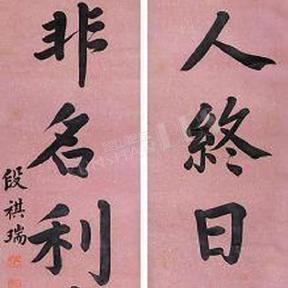 人終日
非名利
段祺瑞